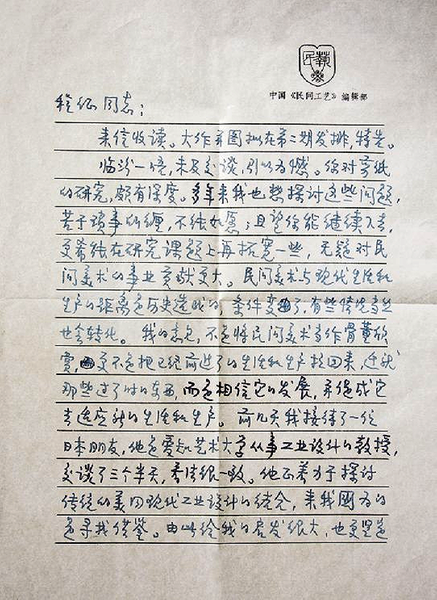 中国《民间工艺》编辑部
程征同志：
来信收读。大作并图拟在第二期发排，特告。
临汾一晤，未及交谈，引以为憾。你对剪纸
的研究，颇有深度。多年来我也想探讨这些问题，
苦于琐事纠缠，不能如愿；且望你能继续下去，
更希能在研究课题上再拓宽一些，无疑对民
间美术的事业贡献更大。民间美术与现代生活和
生产的距离是历史造成的，条件变了，有些传统当然
也会转化。我的意见，不是将民间美术当作骨董欣
赏，更不是把已经前进了的生活和生产拉回来，迁就
那些过了时的东西，而是相信它的发展，并促成它
去适应新的生活和生产。前几天我接待了一位
日本朋友，他是爱知艺术大学从事工业设计的教授，
交谈了三个半天，看法很一致。他正着力于探讨
传统的美同现代工业设计的结合，来我国为的
是寻找借鉴。由此给我的启发很大，也更坚定